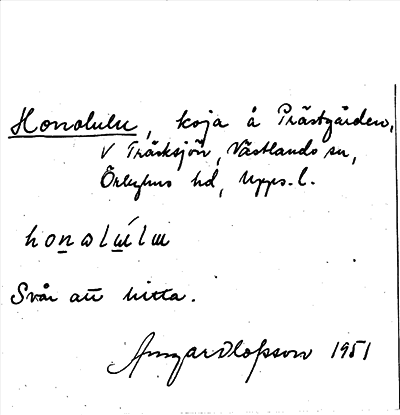 Honolulu, koja å Prästgården,
V Träsksjön, Västlands sn,
Örbyhus hd, Upps. l.
honolúlu
Svår att hitta.
Ansgar Olofsson 1951